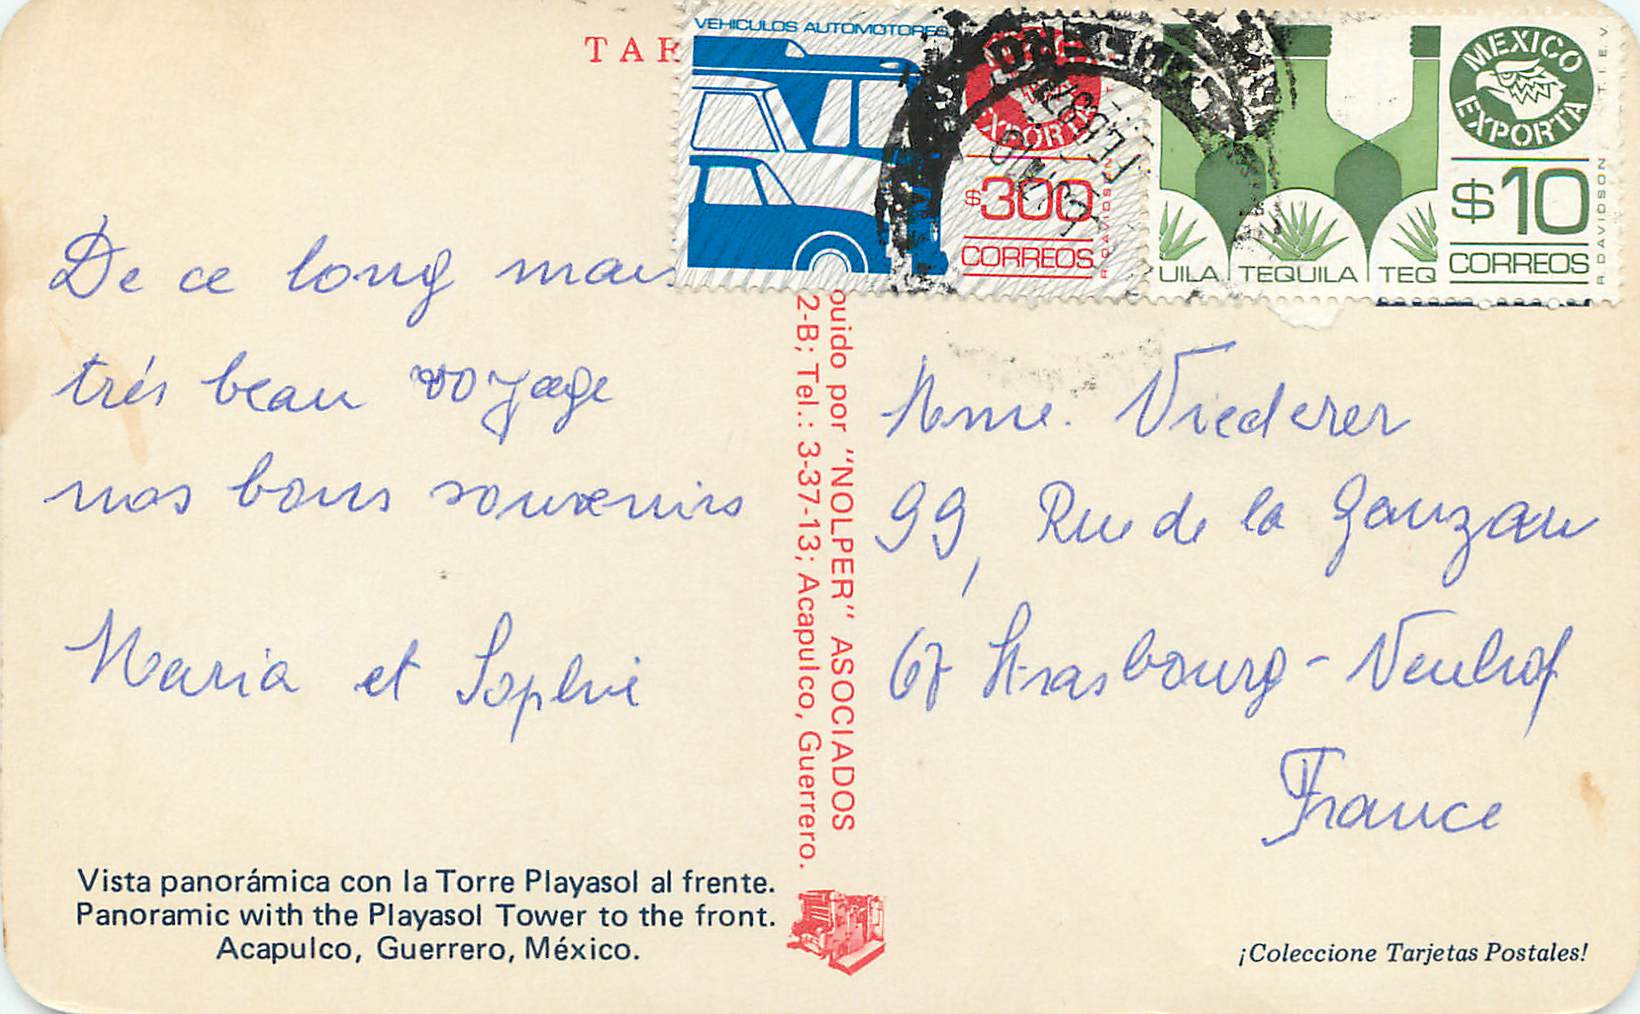 TAR
VEHICULOS AUTOMOTORES
$300
CORREOS
MEXICO
EXPORTA
$10
CORREOS
UILA TEQUILA TEQ
R. DAVIDSON T.I.E.V.
De ce long mais
trés beau voyage
nos bons souvenirs
Maria et Sophie
Mme. Viederer
99, Rue de la Ganzau
67 Strasbourg - Neuhof
France
buido por "NOLPER" ASOCIADOS
2-B; Tel.: 3-37-13; Acapulco, Guerrero.
Vista panorámica con la Torre Playasol al frente.
Panoramic with the Playasol Tower to the front.
Acapulco, Guerrero, México.
¡Coleccione Tarjetas Postales!